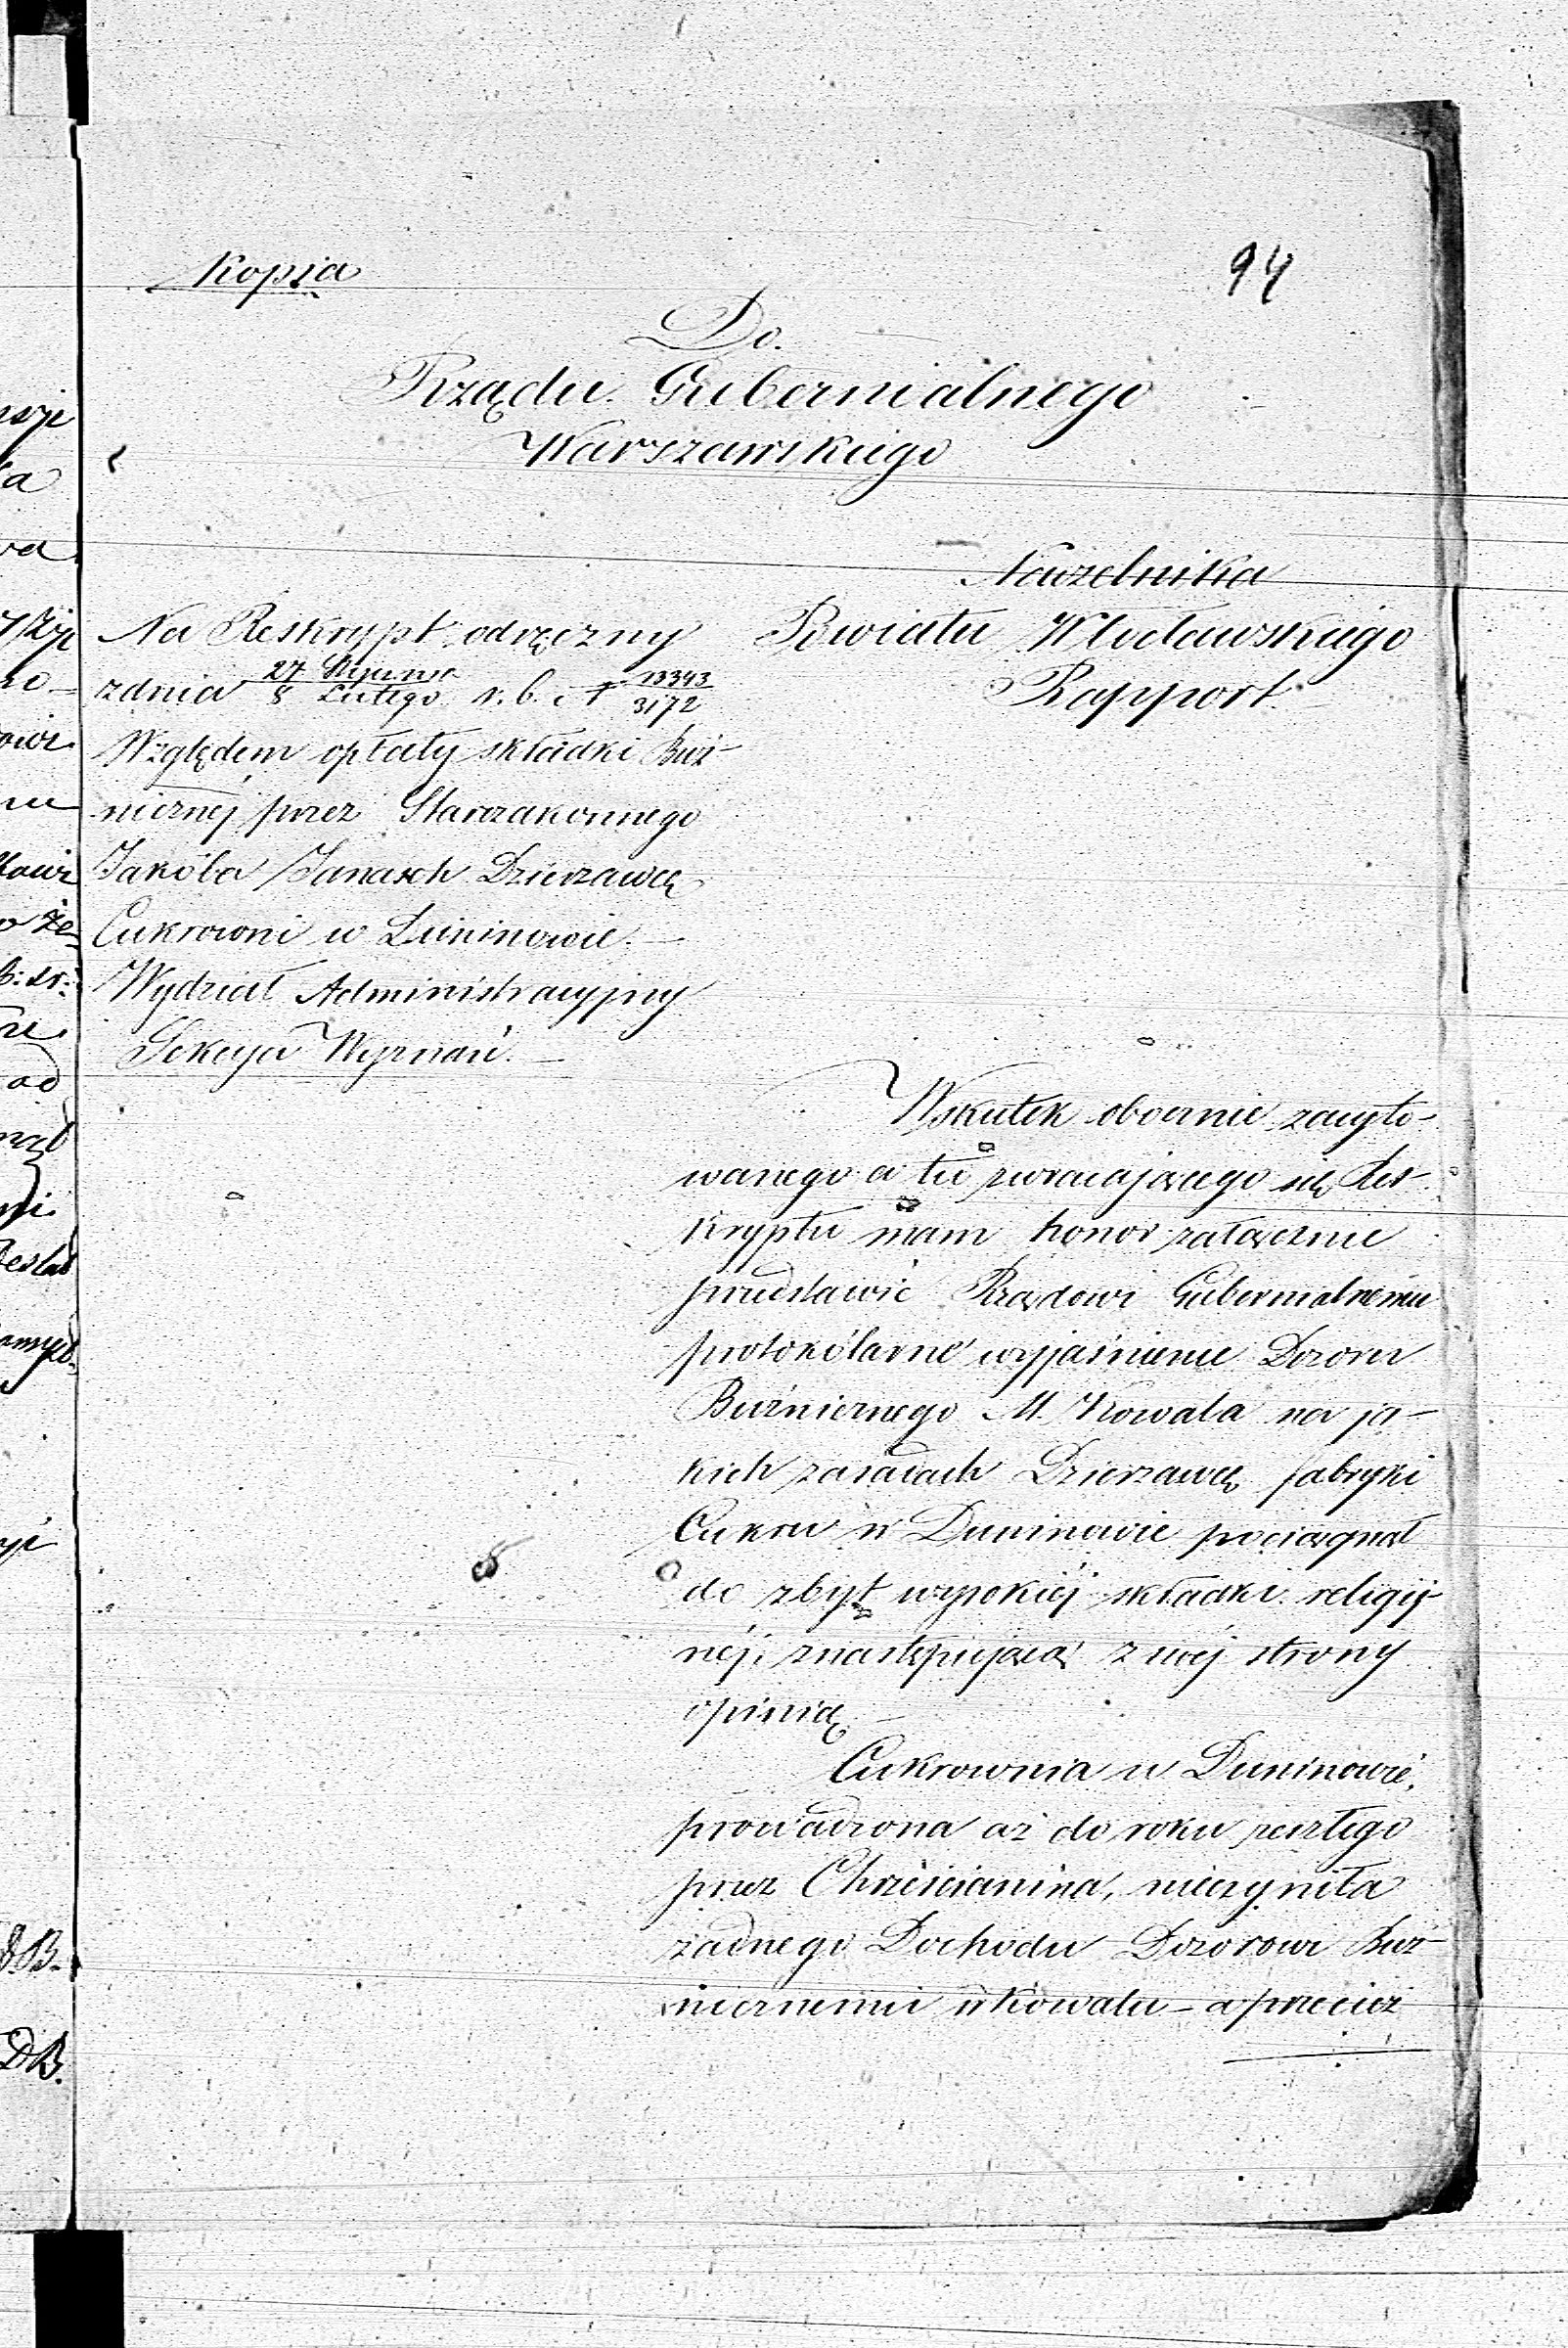 Kopia
94
Do
Rządu Gubernialnego
Warszawskiego
Naczelnika
Powiatu Włocławskiego
Rapport.
Na Reskrypt odręczny
z dnia 27 Stycznia / 8 Lutego r. b. N 13343 / 3172
Względem opłaty składki Buź-
nicznej przez Starozakonnego
Jakóba Janasch Dzierzawcę
Cukrowni w Duninowie. —
Wydział Administracyjny
Sekcya Wyznań. —
W skutek obocznie zacyto-
wanego a tu zwracającego się Res-
kryptu mam honor załącznie
przedstawić Rządowi Gubernialnému
protokólarne wyjaśnienie Dozoru
Buźnicznego M. Kowala na ja-
kich zasadach Dzierzawcę fabryki
Cukru w Duninowie pociągnął
do zbyt wysokiéj składki religij-
néj, z następującą z swéj strony
opinią. —
Cukrownia w Duninowie,
prowadzona aż do roku zeszłego
przez Chrześcianina, nieczyniła
żadnego Dochodu Dozorowi Buź-
nicznemu w Kowalu — a przecież